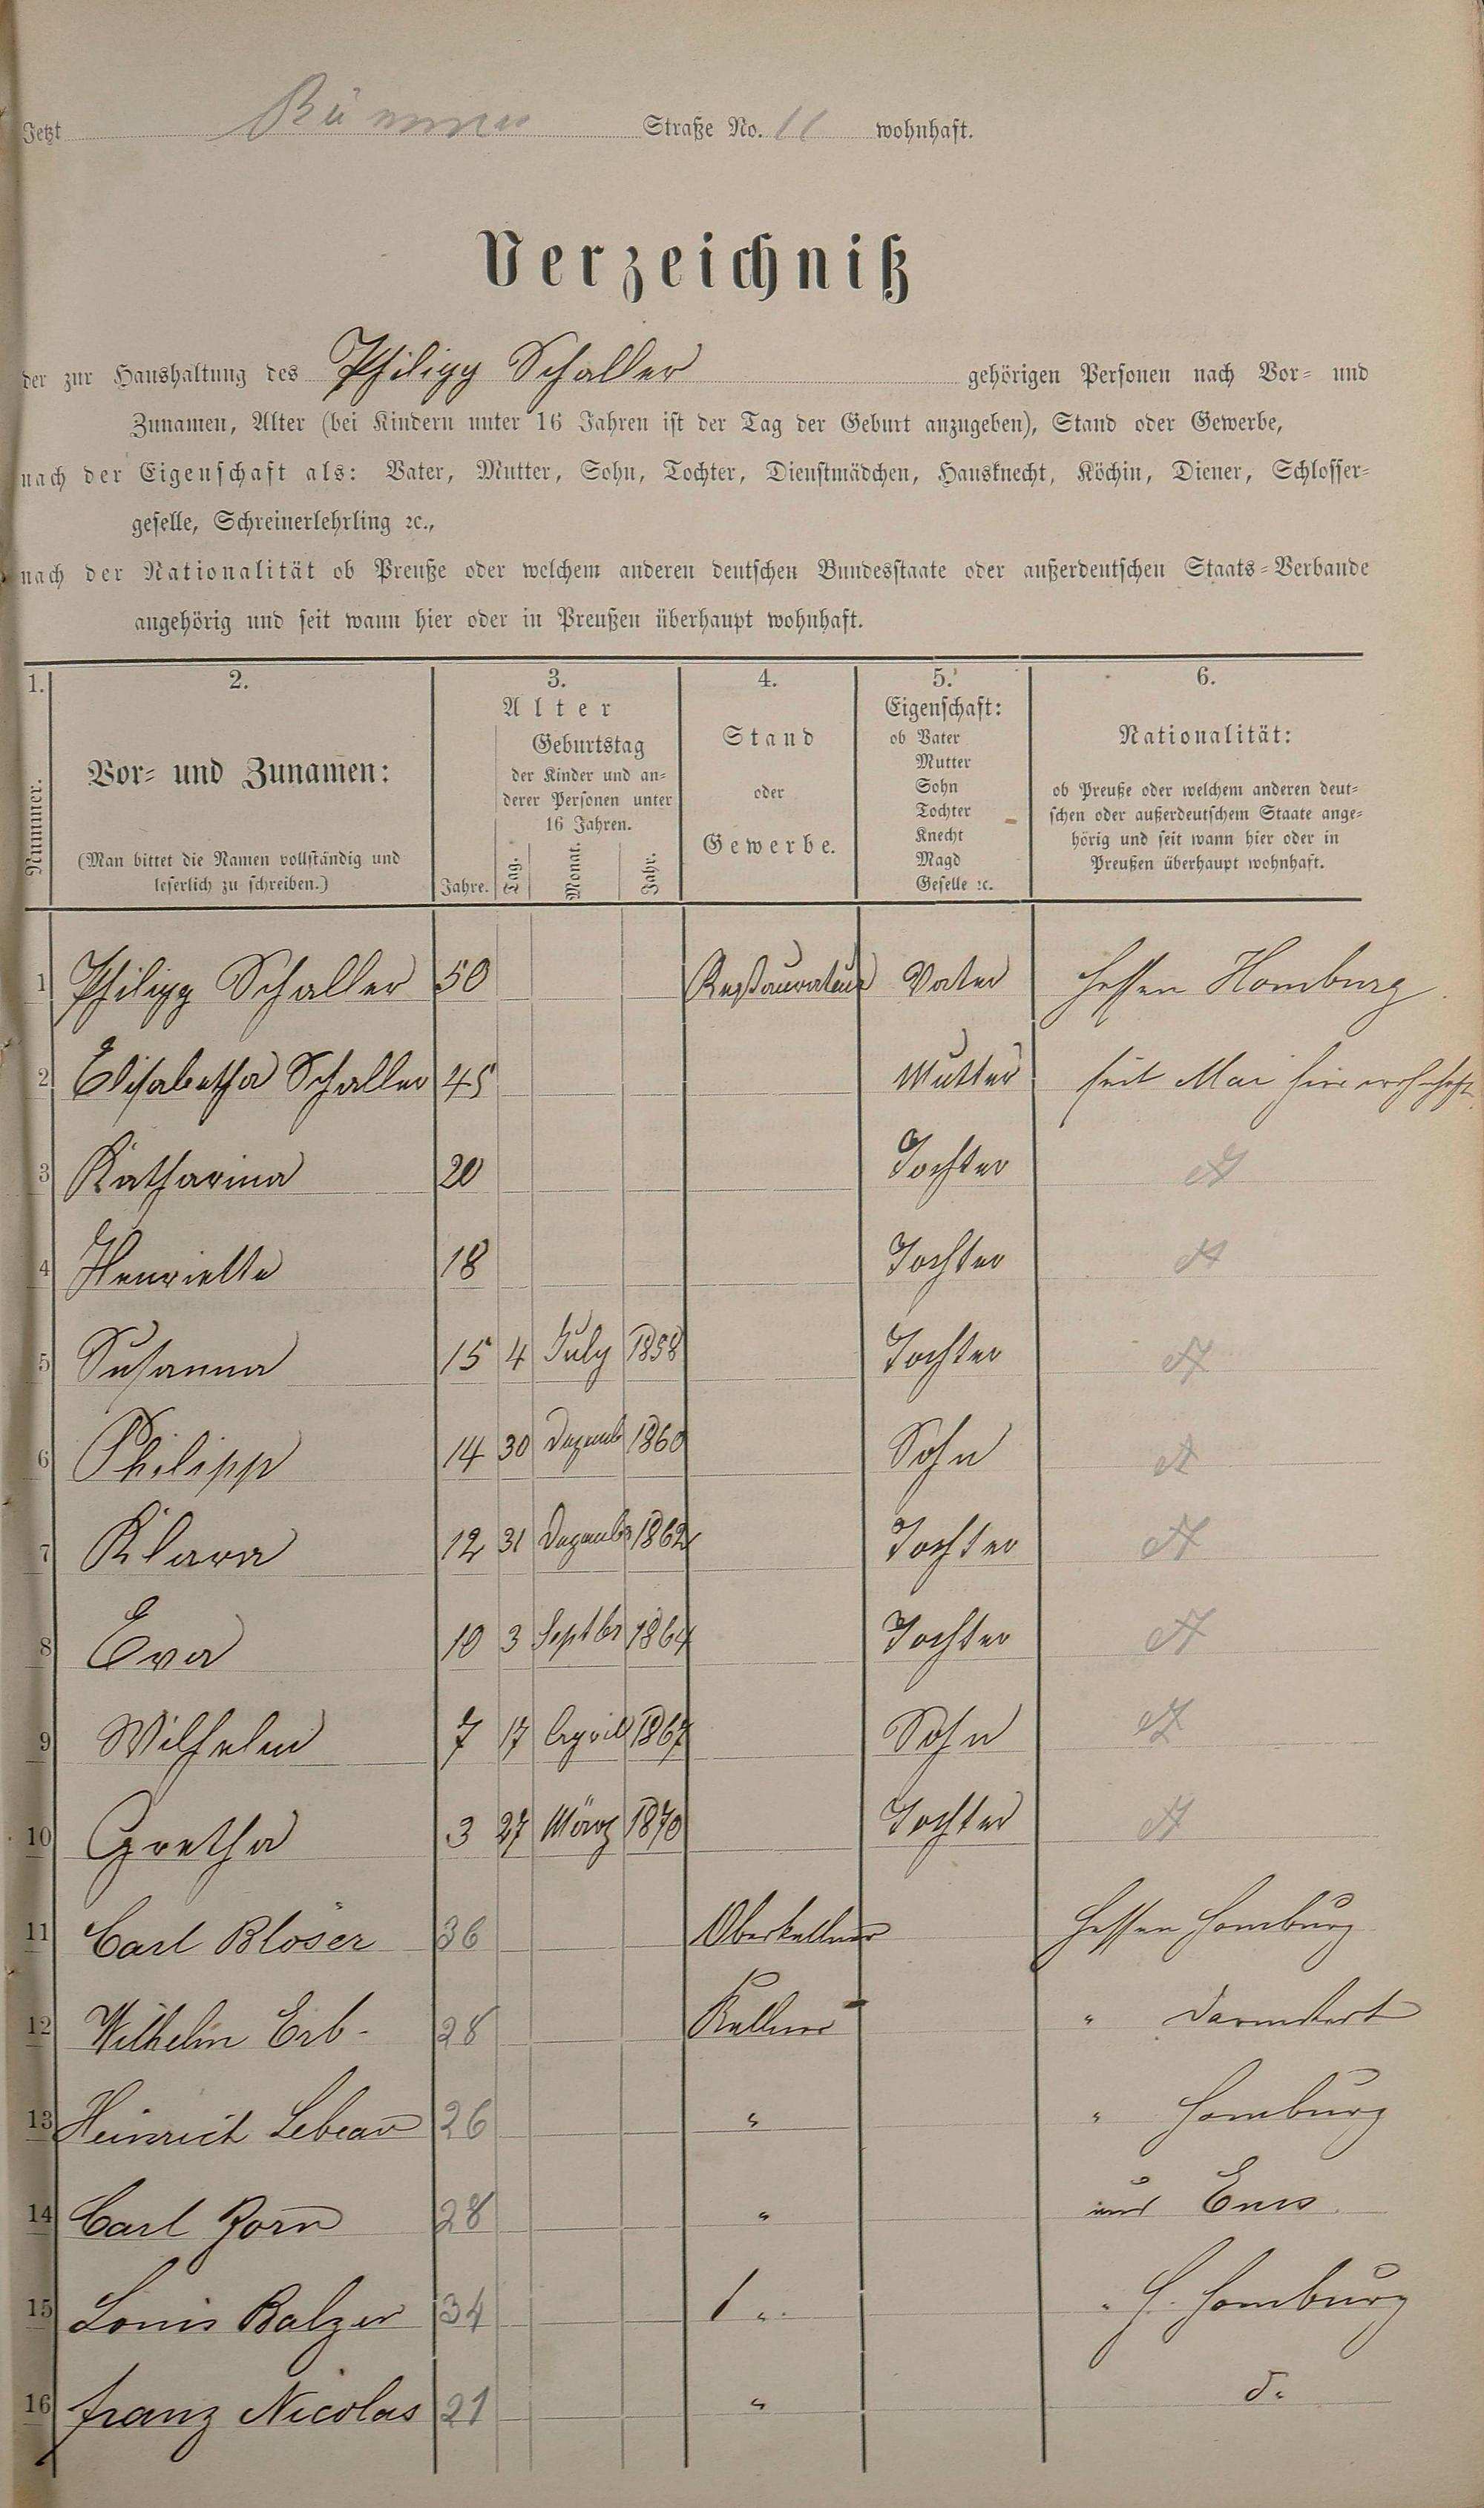 Jetzt Straße No. 11 wohnhaft.
Verzeichniß
der zur Haushaltung des Philipp Schaller gehörigen Personen nach Vor- und
Zunamen, Alter (bei Kindern unter 16 Jahren ist der Tag der Geburt anzugeben), Stand oder Gewerbe,
nach der Eigenschaft als: Vater, Mutter, Sohn, Tochter, Dienstmädchen, Hausknecht, Köchin, Diener, Schlosser-
geselle, Schreinerlehrling ꝛc.,
nach der Nationalität ob Preuße oder welchem anderen deutschen Bundesstaate oder außerdeutschen Staats-Verbande
angehörig und seit wann hier oder in Preußen überhaupt wohnhaft.
1. Nummer.
2. Vor- und Zunamen:
(Man bittet die Namen vollständig und
leserlich zu schreiben.)
3. Alter
Jahre.
Geburtstag
der Kinder und an-
derer Personen unter
16 Jahren.
Tag. Monat. Jahr.
4. Stand
oder
Gewerbe.
5. Eigenschaft:
ob Vater
Mutter
Sohn
Tochter
Knecht
Magd
Geselle ꝛc.
6. Nationalität:
ob Preuße oder welchem anderen deut-
schen oder außerdeutschem Staate ange-
hörig und seit wann hier oder in
Preußen überhaupt wohnhaft.
1 Philipp Schaller 50 Restaurateur Vater Hessen Homburg
2 Elisabetha Schaller 45 Mutter seit Mai hier wohnhaft
3 Katharina 20 Tochter
4 Henriette 18 Tochter
5 Susanna 15 4 July 1858 Tochter
6 Philipp 14 30 Dezemb 1860 Sohn
7 Klara 12 31 Dezembr 1862 Tochter
8 Eva 10 3 Septbr 1864 Tochter
9 Wilhelm 7 17 April 1867 Sohn
10 Gretha 3 27 März 1870 Tochter
11 Carl Blöser 36 Oberkellner Hessen Homburg
12 Wilhelm Erb - 28 Kellner " Darmstadt
13 Heinrich Lebeau 26 " " Homburg
14 Carl Zorn 28 " Ems
15 Louis Balzer 34 " " H. Homburg
16 Franz Nicolas 21 " do